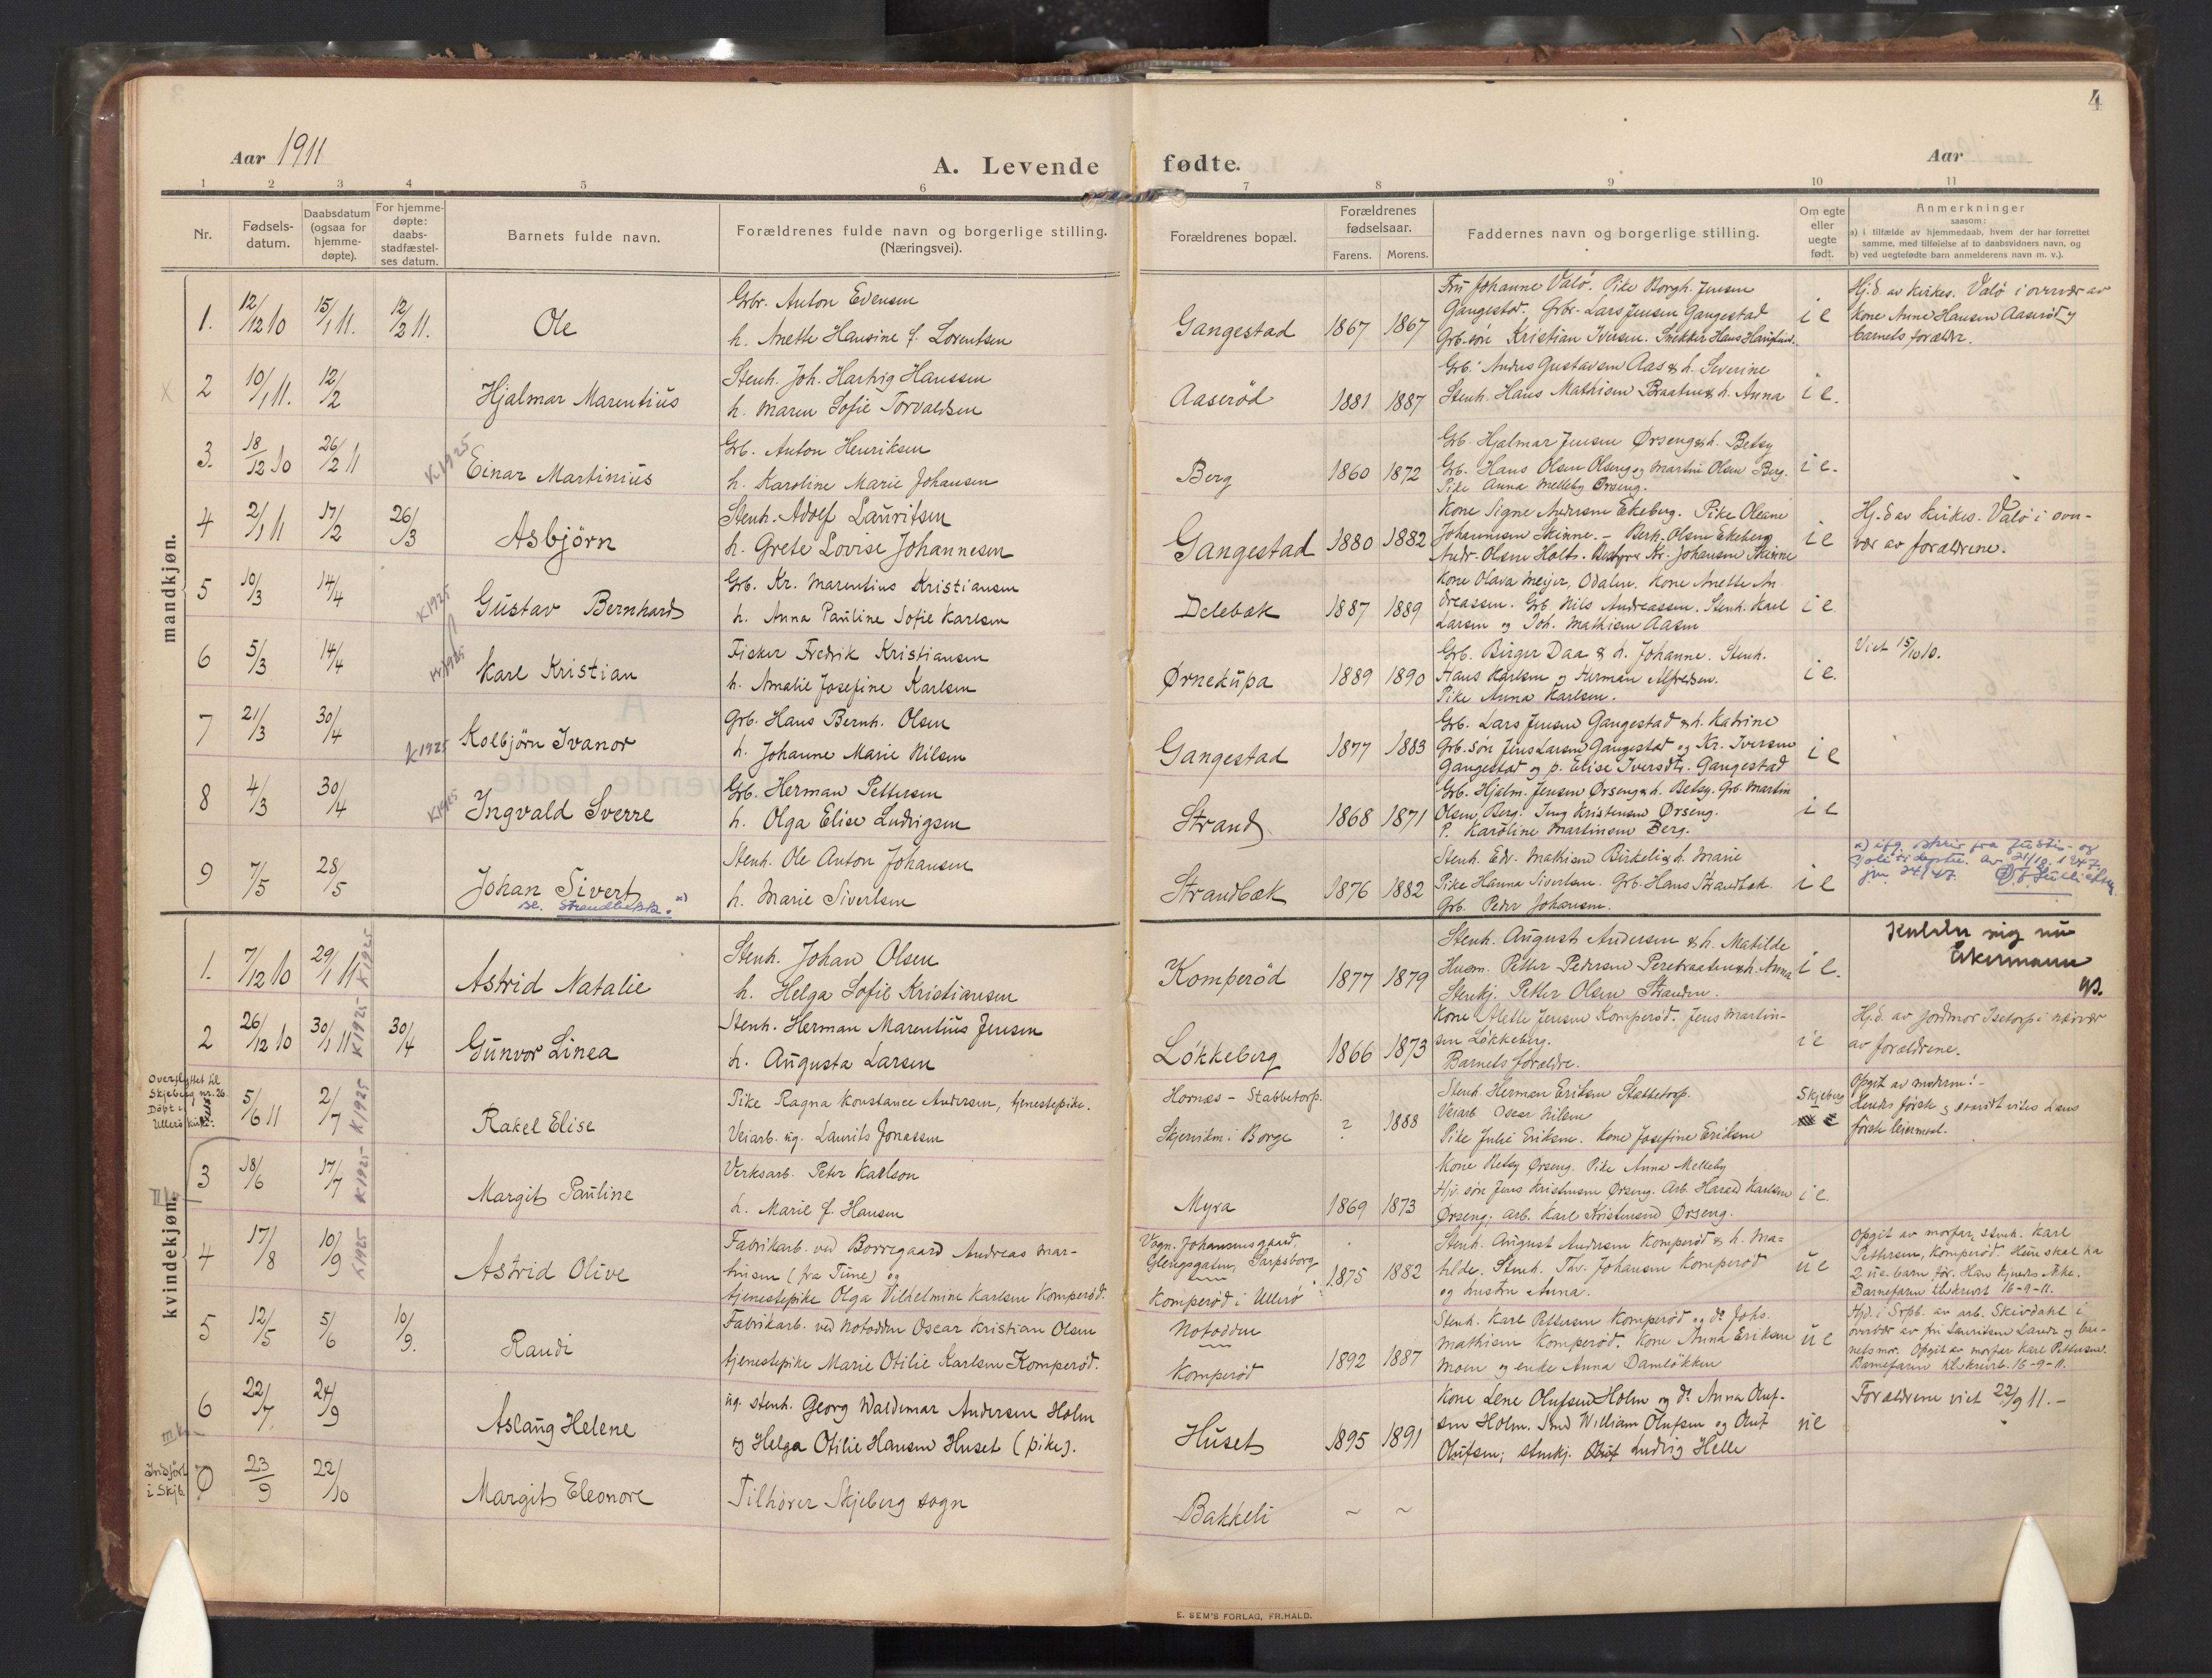 4
Aar 1911
A. Levende fødte.
Aar
1 2 3 4 5 6 7 8 9 10 11
Nr.
Fødsels-
datum.
Daabsdatum
(ogsaa for
hjemme-
døpte).
For hjemme-
døpte:
daabs-
stadfæstel-
ses datum.
Barnets fulde navn.
Forældrenes fulde navn og borgerlige stilling.
(Næringsvei).
Forældrenes bopæl.
Forældrenes
fødselsaar.
Farens. Morens.
Faddernes navn og borgerlige stilling.
Om egte
eller
uegte
født.
Anmerkninger
saasom:
a) i tilfælde av hjemmedaab, hvem der har forrettet
samme, med tilføielse af to daabsvidners navn, og
b) ved uegtefødte barn anmelderens navn m. v.).
mandkjøn.
1. 12/12 10 15/1 11. 12/2 11. Ole
Gbr. Anton Evensen
h. Anette Hansine f. Lorentsen
Gangestad 1867 1867
Fru Johanne Valø. Pike Borgh. Jensen
Gangestad. Grbr. Lars Jensen Gangestad
Grb.søn Kristian Iversen. Snekker Hans Hauglund.
i e
Hj.d. av kirkes. Valø i overvær av
kone Anne Hansen Aaserød og
barnets forældre.
2 10/1 11. 12/2 Hjalmar Marentius
Stenh. Joh. Hartvig Hanssen
h. Maren Sofie Torvaldsen
Aaserød 1881 1887
Grb. Anders Gustavsen Aas & h. Severine
Stenh. Hans Mathisen Braaten & h. Anna
i e.
3. 18/12 10 26/2 11 K 1925 Einar Martinius
Grb. Anton Henriksen
h. Karoline Marie Johansen
Berg 1860 1872
Grb. Hjalmar Jensen Ørseng & h. Betsy
Grb. Hans Olsen Olseng og Martin Olsen Berg.
Pike Anna Melleby Ørseng.
i e.
4 2/1 11 17/2 26/3 Asbjörn
Stenh. Adolf Lauritsen
h. Grete Lovise Johannesen
Gangestad 1880 1882
Kone Signe Andersen Ekeberg. Pike Oleane
Johannesen Skinne. – Berh. Olsen Ekeberg
Andr. Olsen Holt. Kr. Johansen Skinne
i e
Hj.d av kirkes. Valø i over-
vær av forældrene.
5 10/3 14/4 K 1925 Gustav Bernhard
Grb. Kr. Marentius Kristiansen
h. Anna Pauline Sofie Karlsen
Delebæk 1887 1889
Kone Olava Meijer, Odalen. Kone Anette An
dreassen. Grb. Nils Andreassen. Stenh. Karl
Larsen og Joh. Mathisen Aasen
i e.
6 5/3 14/4 K 1925 Karl Kristian
Fisker Fredrik Kristiansen
h. Amalie Josefine Karlsen
Ørnekupa 1889 1890
Grb. Birger Daa & h. Johanne. Stenh.
Hans Karlsen og Herman Alfredsen.
Pike Anna Karlsen.
i e.
Viet 15/10 10.
7 21/3 30/4 K 1925 Kolbjörn Ivanor
Grb. Hans Bernh. Olsen
h. Johanne Marie Nilsen
Gangestad 1877 1883
Grb. Lars Jensen Gangestad & h. Katrine
Grb.søn Jens Larsen Gangestad og Kr. Iversen
Gangestad og p. Elise Iversdtr. Gangestad
i e
8 4/3 30/4 K 1925 Ingvald Sverre
Grb. Herman Pettersen
h. Olga Elise Ludvigsen
Strand 1868 1871
Grb. Hjalm. Jensen Ørseng & h. Betsy. Grb. Martin
Olsen Berg. Jens Kristensen Ørseng.
P. Karoline Martinsen Berg.
i e
9 7/5 28/5 Johan Sivert
se. Strandbekk. x)
Stenh. Ole Anton Johansen
h. Marie Sivertsen
Strandbæk 1876 1882
Stenh. Edv. Mathisen Birkeli & h. Marie
Pike Hanna Sivertsen. Grb. Hans Strandbæk.
Grb. Peder Johansen.
i e
x) ifg. skriv fra Justis- og
Politideptet. av 21/10. 1947
jnr. 24/47.
kvindekjøn.
1. 7/12 10 29/1 11 K 1925 Astrid Natalie
Stenh. Johan Olsen
h. Helga Sofie Kristiansen
Komperød 1877 1879
Stenh. August Andersen & h. Matilde
Husm. Petter Pedersen Perebraaten & h. Anna
Stenkj. Petter Olsen Stranden.
i e.
Kalder sig nu
Ekermann
2 26/12 10 30/1 11 K 1925 30/4 Gunvor Linea
Stenh. Herman Marentius Jensen
h. Augusta Larsen
Løkkeberg 1866 1873
Kone Alette Jensen Komperød. Jens Martin-
sen Løkkeberg.
Barnets forældre.
i e
Hj.d. av Jordmor Isetorp i nærvær
av forældrene.
Overflyttet til
Skjeberg nr. 26.
Döpt i
Ullerø kirke.
5/6 11 2/7 K 1925 Rakel Elise
Pike Ragna Konstance Andersen, tjenestepike.
Veiarb. ug. Laurits Jonassen
Hornæs – Stabbetorp.
Skjervikm i Borge ? 1888
Stenh. Herman Eriksen Stabbetorp.
Veiarb Oscar Nilsen
Pike Julie Eriksen. Kone Josefine Eriksen
Skjeberg
Opgit av moderen! –
Hendes første og saavidt vites hans
første leiermaal.
3 18/6 17/7 K 1925 Margit Pauline
Verksarb. Peter Karlson
h. Marie f. Hansen
Myra 1869 1873
Kone Betsy Ørseng. Pike Anna Melleby
Hjv. søn Jens Kristensen Ørseng. Arb. Harald Karlsen
Ørseng; arb. Karl Kristensen Ørseng.
i e.
4 17/8 10/9 K 1925 Astrid Olive
Fabrikarb. ved Borregaard Andreas Mar-
tinsen (fra Tune) og
tjenestepike Olga Vilhelmine Karlsen Komperød.
Vogn. Johansensgaard,
Glengsgaten, Sarpsborg
Komperød i Ullerø
1875 1882
Stenh. August Andersen Komperød & h. Ma=
tilde. Stenh. Thv. Johansen Komperød
og hustru Anna.
u e
Opgit av morfar, stenh. Karl
Pettersen, Komperød. Hun skal ha
2 u.e. barn før. Han kjendes ikke.
Barnefaren tilskrevet 16-9-11.
5 12/5 5/6 10/9. Randi
Fabrikarb. ved Notodden Oscar Kristian Olsen
tjenestepike Marie Otilie Karlsen Komperød.
Notodden
Komperød
1892 1887
Stenh. Karl Pettersen Komperød og do Johs.
Mathisen Komperød. Kone Anna Eriksen
Moen og enke Anna Damløkken
u e
Hjd. i Srpb. av arb. Skivdahl i
overvær av fru Lauritsen Lande og bar-
nets mor. Opgit av morfar Karl Pettersen.
Barnefaren tilskrevet. 16-9-11.
6 22/7. 24/9 Aslaug Helene
ug. stenh. Georg Waldemar Andersen Holm
og Helga Otilie Hansen Huset (pike).
Huset 1895 1891
Kone Lene Olufsen Holm og do Anna Oluf-
sen Holm. Smed William Olufsen og Oluf
Olufsen; stenkj. Ludvig Helle
u e
Forældrene viet 22/9 11. –
Indført
i Skjb.
23/9 22/10 Margit Eleonore
Tilhører Skjeberg sogn
Bakkeli ~ ~
E. SEM'S FORLAG, FR.HALD.